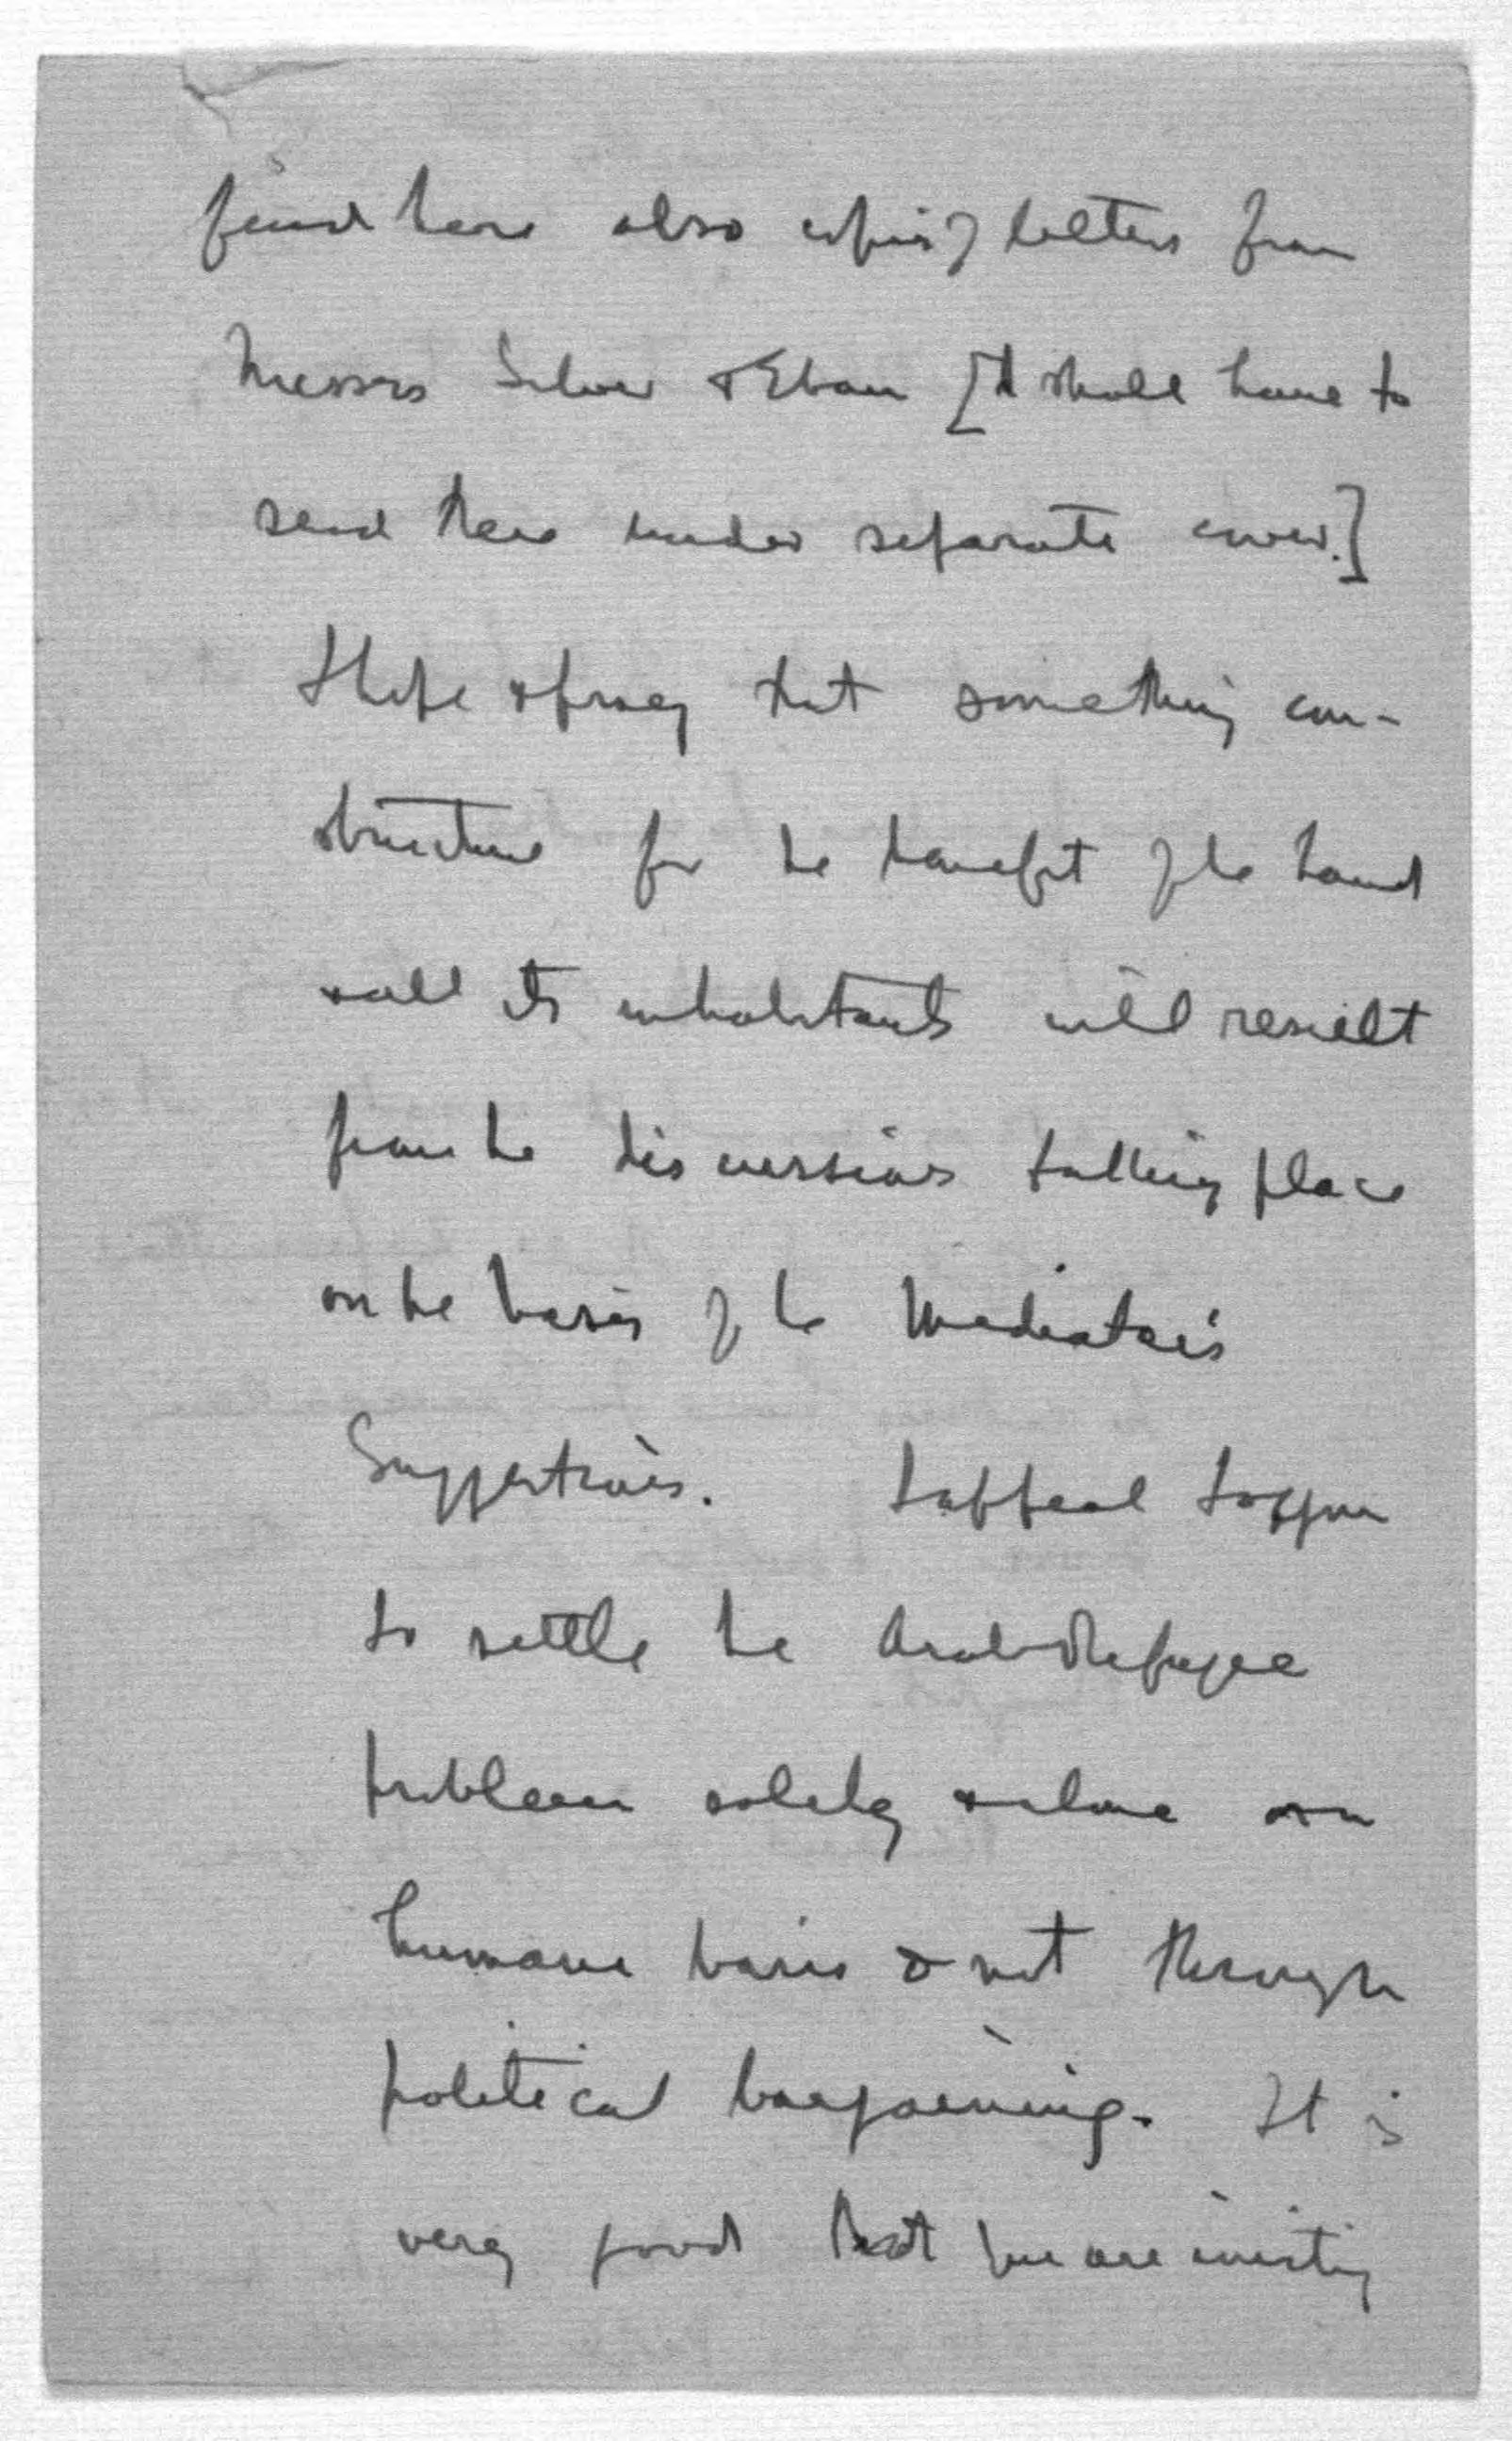 find here also copies of letters from
Messrs Silver & Eban [I shall have to
send these under separate cover.]
I hope & pray that something con-
structive for the benefit of the land
& all its inhabitants will result
from the discussions taking place
on the basis of the Mediator's
Suggestions. I appeal to you
to settle the Arab Refugee
problem solely & alone on a
humane basis & not through
political bargaining. It is
very good that you are inviting